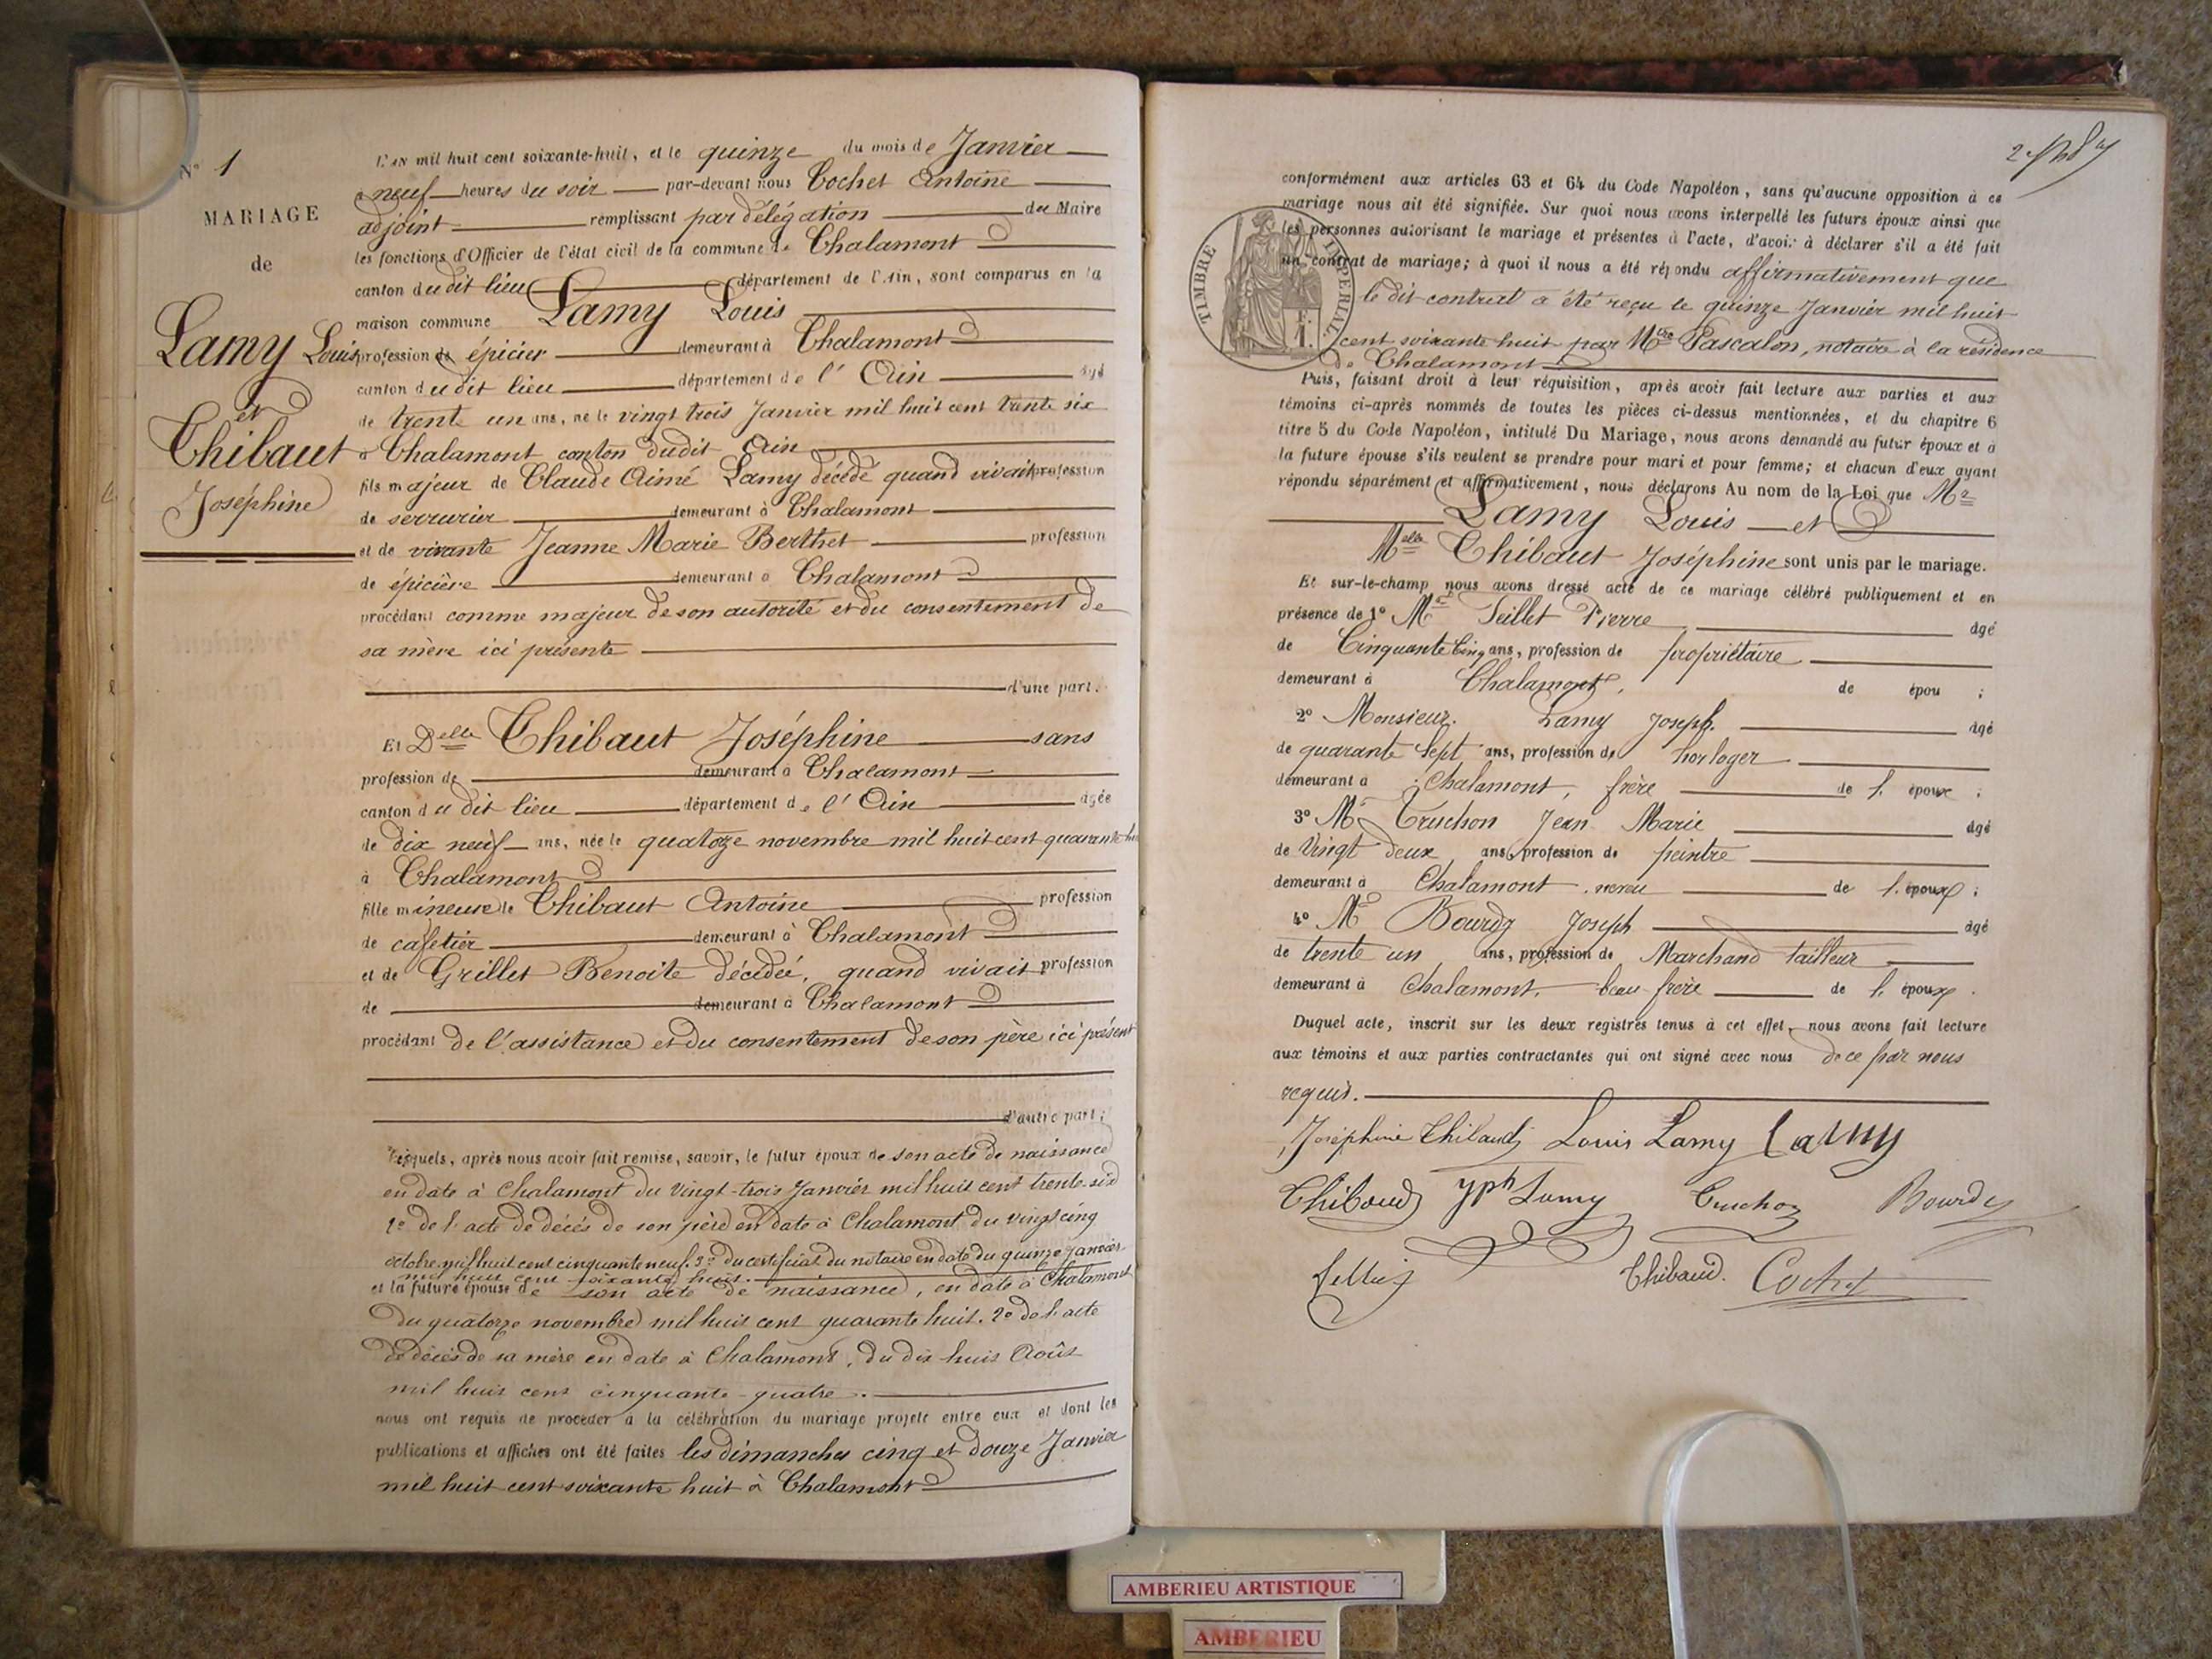 N° 1
MARIAGE
de
Lamy Louis
et
Thibaut
Joséphine
L'an mil huit cent soixante-huit, et le quinze du mois de Janvier
à neuf heures du soir par-devant nous Cochet Antoine
adjoint remplissant par délégation du Maire
les fonctions d'Officier de l'état civil de la commune de Chalamont
canton du dit lieu département de l'Ain, sont comparus en la
maison commune Lamy Louis
profession de épicier demeurant à Chalamont
canton du dit lieu département de l'Ain âgé
de trente un ans, né le vingt trois Janvier mil huit cent trente six
à Chalamont canton dudit Ain
fils majeur de Claude Aimé Lamy décédé quand vivait profession
de serrurier demeurant à Chalamont
et de vivante Jeanne Marie Berthet profession
de épicière demeurant à Chalamont
procédant comme majeur de son autorité et du consentement de
sa mère ici présente
d'une part.
Et Delle Thibaut Joséphine sans
profession de demeurant à Chalamont
canton du dit lieu département de l'Ain âgée
de dix neuf ans, née le quatorze novembre mil huit cent quarante
à Chalamont
fille mineuse de Thibaut Antoine profession
de cafetier demeurant à Chalamont
et de Grillet Benoite décédée, quand vivait profession
de demeurant à Chalamont
procédant de l'assistance et du consentement de son père ici présent
d'autre part;
Lesquels, après nous avoir fait remise, savoir, le futur époux de son acte de naissance
en date à Chalamont du vingt-trois Janvier mil huit cent trente-six
2° de l'acte de décès de son père en date à Chalamont du vingt cinq
octobre mil huit cent cinquante neuf. 3° du certificat du notaire en date du quinze janvier
mil huit cent soixante huit.
et la future épouse de son acte de naissance, en date à Chalamont
du quatorze novembre mil huit cent quarante huit. 2° de l'acte
de décès de sa mère en date à Chalamont, du dix huit Août
mil huit cent cinquante-quatre.
nous ont requis de procéder à la célébration du mariage projeté entre eux et dont les
publications et affiches ont été faites les dimanches cinq et douze Janvier
mil huit cent soixante huit à Chalamont
conformément aux articles 63 et 64 du Code Napoléon, sans qu'aucune opposition à ce
mariage nous ait été signifiée. Sur quoi nous avons interpellé les futurs époux ainsi que
les personnes autorisant le mariage et présentes à l'acte, d'avoir à déclarer s'il a été fait
un contrat de mariage; à quoi il nous a été répondu affirmativement que
le dit contrat a été reçu le quinze Janvier mil huit
cent soixante huit par Mtre Pascalon, notaire à la résidence
de Chalamont
TIMBRE IMPERIAL
1 F.
Puis, faisant droit à leur réquisition, après avoir fait lecture aux parties et aux
témoins ci-après nommés de toutes les pièces ci-dessus mentionnées, et du chapitre 6
titre 5 du Code Napoléon, intitulé Du Mariage, nous avons demandé au futur époux et à
la future épouse s'ils veulent se prendre pour mari et pour femme; et chacun d'eux ayant
répondu séparément et affirmativement, nous déclarons Au nom de la Loi que Mr
Lamy Louis et
Melle Thibaut Joséphine sont unis par le mariage.
Et sur-le-champ nous avons dressé acte de ce mariage célébré publiquement et en
présence de 1° Mr Pierre âgé
de Cinquante Cinq ans, profession de propriétaire
demeurant à Chalamont, de épou ;
2° Monsieur Lamy Joseph. âgé
de quarante sept ans, profession de horloger
demeurant à Chalamont, frère de l'époux ;
3° Mr Truchon Jean Marie âgé
de Vingt deux ans, profession de peintre
demeurant à Chalamont, neveu de l'époux ;
4° Mr Bourdy Joseph âgé
de trente un ans, profession de Marchand tailleur
demeurant à Chalamont, beau-frère de l'époux.
Duquel acte, inscrit sur les deux registres tenus à cet effet, nous avons fait lecture
aux témoins et aux parties contractantes qui ont signé avec nous de ce par nous
requis.
Joséphine Thibaud Louis Lamy Lamy
Thibaud Jph Lamy Truchon Bourdy
Thibaud. Cochet
AMBERIEU ARTISTIQUE
AMBERIEU